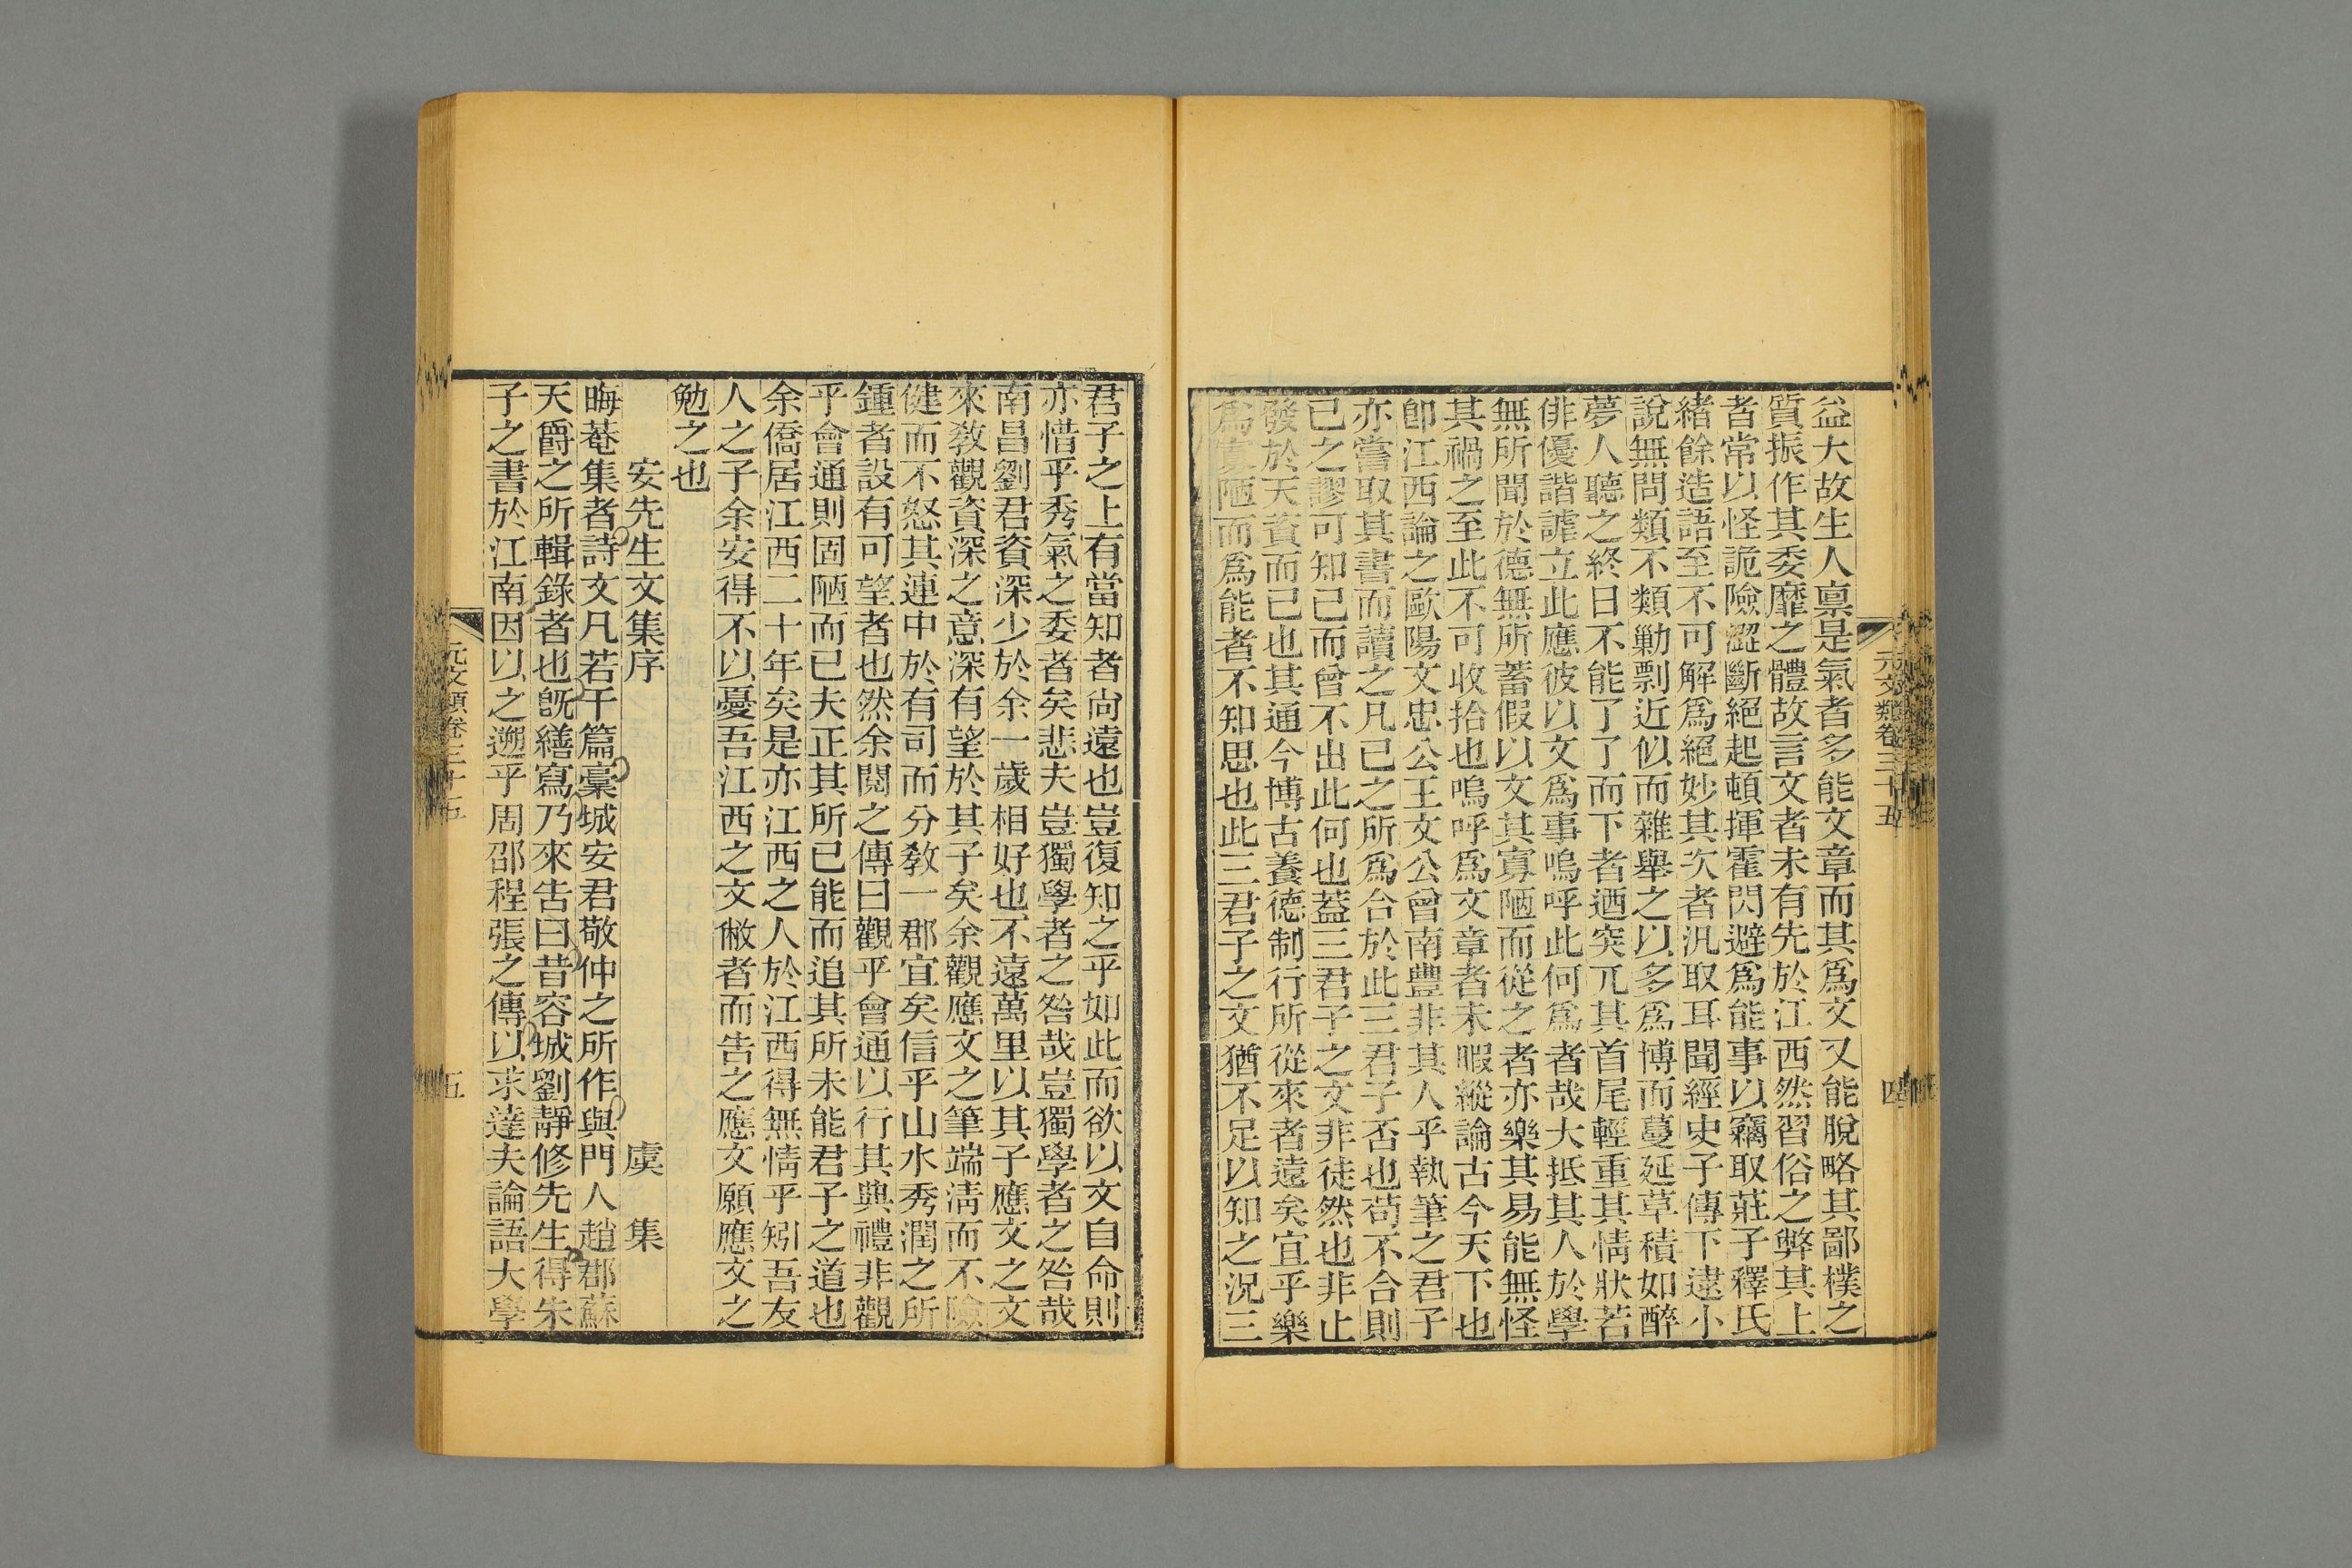 益大故生人禀是氣者多能文章而其爲文又能脫略其鄙樸之
質振作其委靡之體故言文者未有先於江西然習俗之弊其上
者常以怪詭險澀斷絕起頓揮霍閃避爲能事以竊取莊子釋氏
緒餘造語至不可解爲絕妙其次者汎取耳聞經史子傳下逮小
說無問類不類勦剽近似而雜舉之以多爲博而蔓延草積如醉
夢人聽之終日不能了了而下者迺突兀其首尾輕重其情狀若
俳優諧謔立此應彼以文爲事嗚呼此何爲者哉大抵其人於學
無所聞於德無所蓄假以文其寡陋而從之者亦樂其易能無怪
其禍之至此不可收拾也嗚呼爲文章者未暇縱論古今天下也
卽江西論之歐陽文忠公王文公曾南豐非其人乎執筆之君子
亦嘗取其書而讀之凡已之所爲合於此三君子否也苟不合則
已之謬可知已而曾不出此何也蓋三君子之文非徒然也非止
發於天資而已也其通今博古養德制行所從來者遠矣宜乎樂
爲寡陋而爲能者不知思也此三君子之文猶不足以知之況三
元文類卷三十五
四
君子之上有當知者尙遠也豈復知之乎如此而欲以文自命則
亦惜乎秀氣之委者矣悲夫豈獨學者之咎哉豈獨學者之咎哉
南昌劉君資深少於余一歲相好也不遠萬里以其子應文之文
來敎觀資深之意深有望於其子矣余觀應文之筆端淸而不險
健而不怒其連中於有司而分敎一郡宜矣信乎山水秀潤之所
鍾者設有可望者也然余閱之傳曰觀乎會通以行其典禮非觀
乎會通則固陋而已夫正其所已能而追其所未能君子之道也
余僑居江西二十年矣是亦江西之人於江西得無情乎矧吾友
人之子余安得不以憂吾江西之文敝者而告之應文願應文之
勉之也
安先生文集序　虞　集
晦菴集者詩文凡若干篇藁城安君敬仲之所作與門人趙郡蘇
天爵之所輯錄者也旣繕寫乃來告曰昔容城劉靜修先生得朱
子之書於江南因以之遡乎周邵程張之傳以求達夫論語大學
元文類卷三十五
五